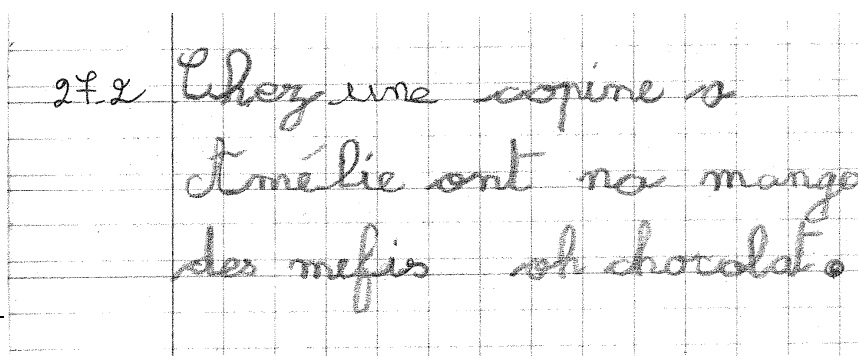 27.2 Chez une copine a
Amélie ont na mangé
des mefis oh chocolat.